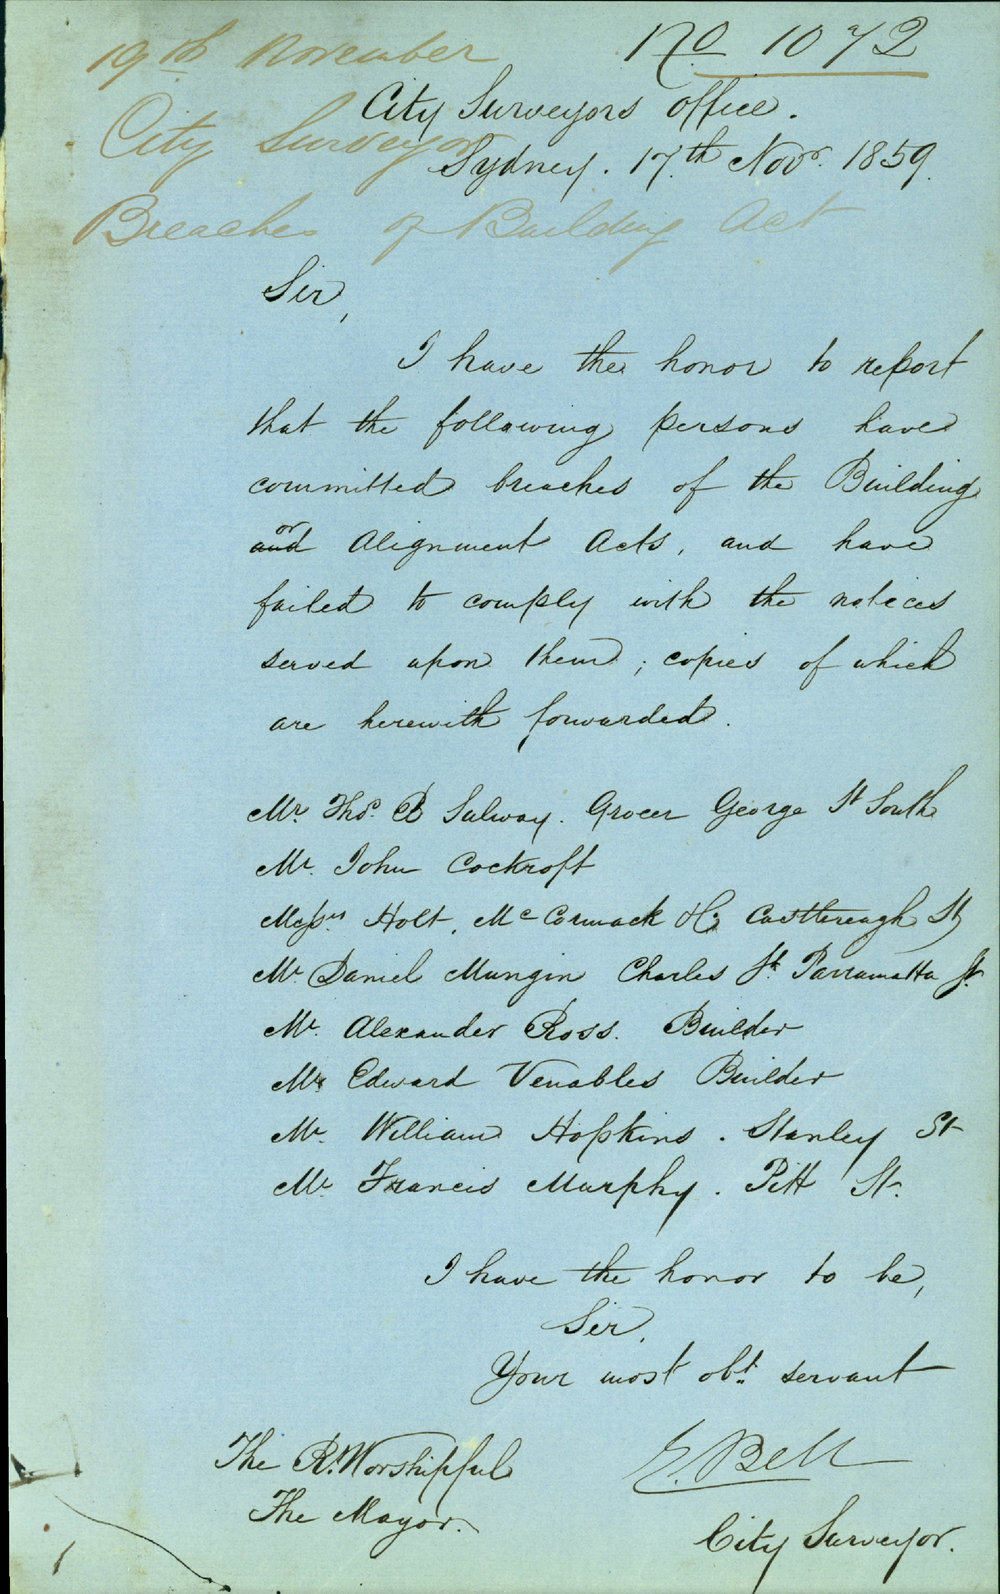 19th November
No 1072
City Surveyor
City Surveyors Office.
Sydney. 17.th Novr. 1859.
Breaches of Building Act
Sir,
I have the honor to report
that the following persons have
committed breaches of the Building
and or Alignment Acts, and have
failed to comply with the notices
served upon them; copies of which
are herewith forwarded.
Mr. Thos. B Salway. Grocer George St South
Mr. John Cockroft
Messrs Holt, McCormack &c Castlereagh St
Mr. Daniel Mungin Charles St. Parramatta St.
Mr. Alexander Ross. Builder
Mr Edward Venables Builder
Mr. William Hopkins. Stanley St
Mr Francis Murphy. Pitt St.
I have the honor to be,
Sir,
Your most obt. servant
E. Bell
The Rt. Worshipful
The Mayor.
City Surveyor.